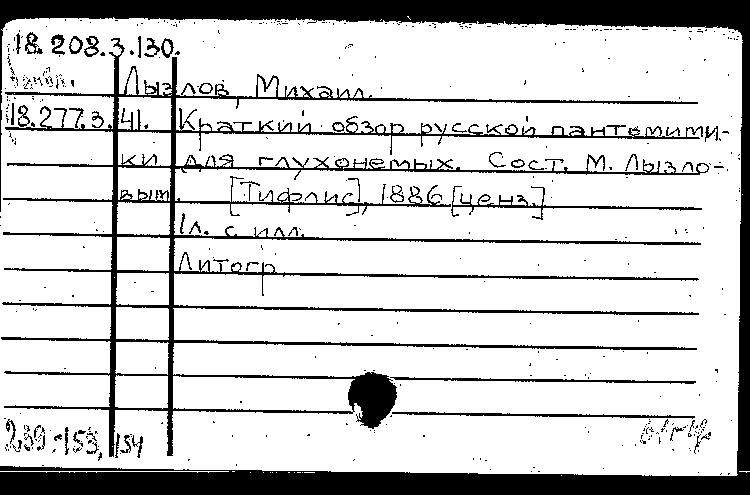 18.208.3.130.
Лызлов, Михаил.
18.277.3.41. Краткий обзор русской пантомими-
ки для глухонемых. Сост. М. Лызло-
вым. [Тифлис], 1886 [ценз.]
1л. с илл.
Литогр.
239-153, 154